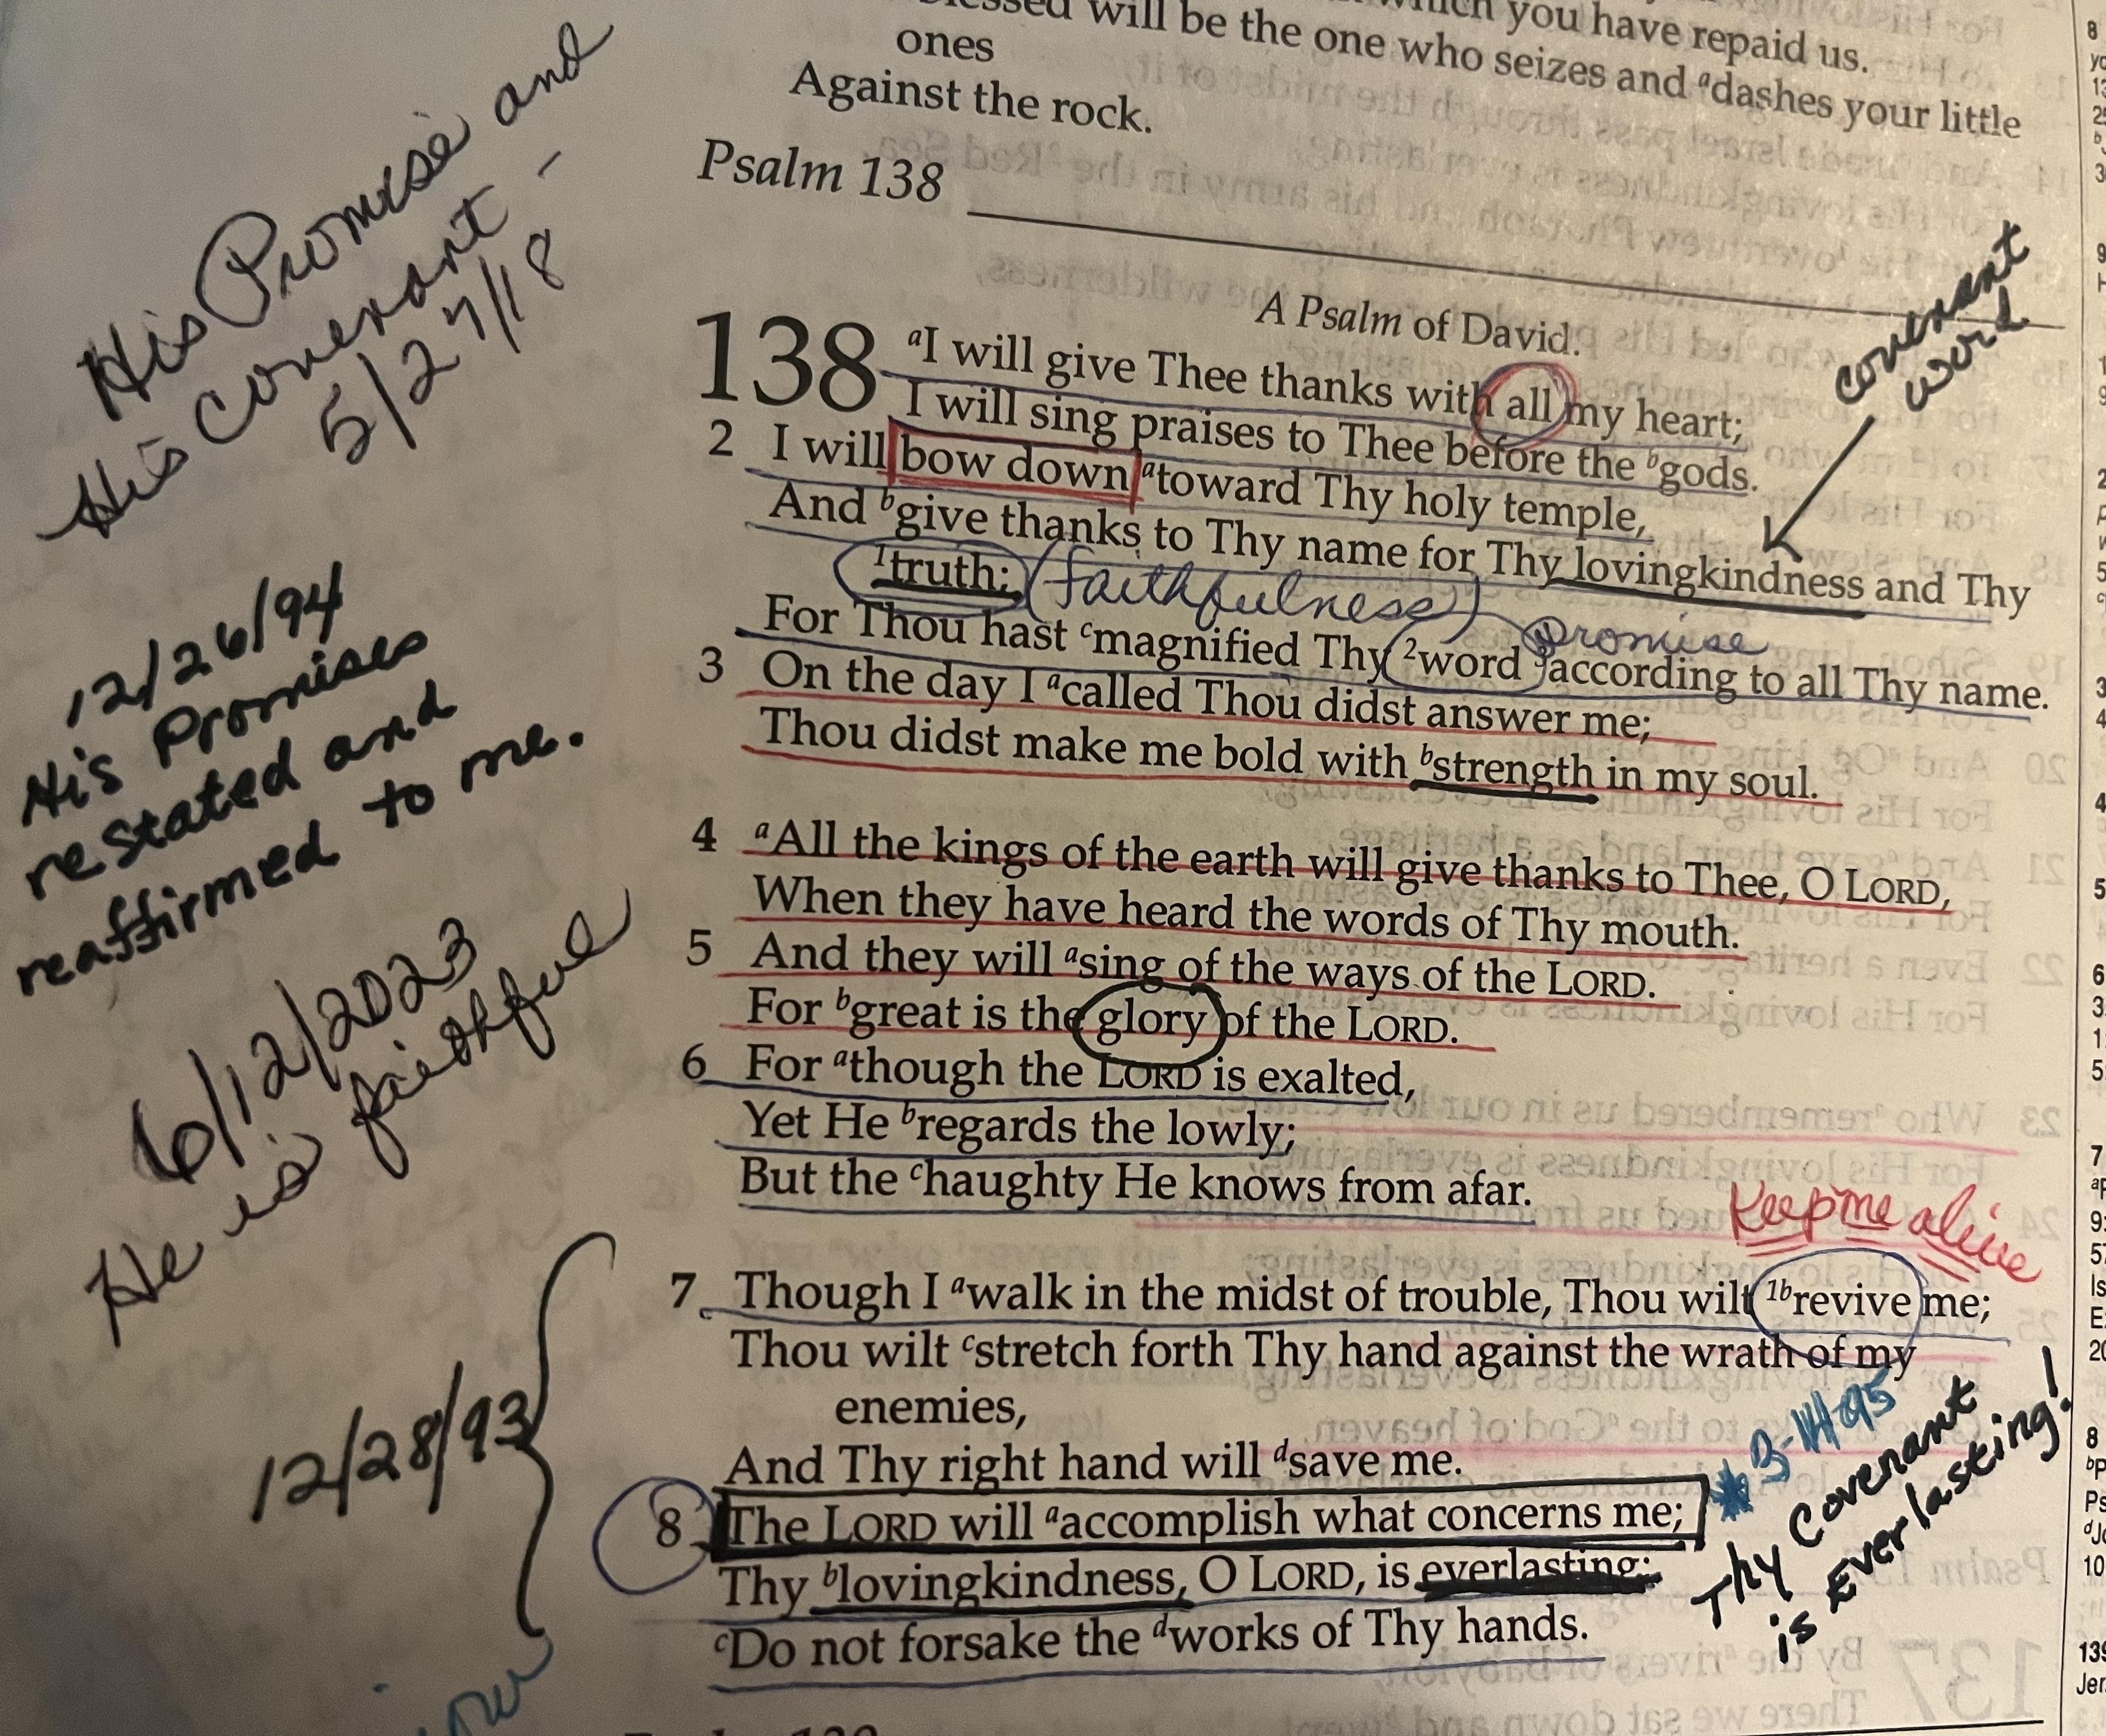 will be the one who seizes and ᵃdashes your little
ones
which you have repaid us.
Against the rock.
Psalm 138
A Psalm of David.
138 ᵃI will give Thee thanks with all my heart;
I will sing praises to Thee before the ᵇgods.
2 I will bow down ᵃtoward Thy holy temple,
And ᵇgive thanks to Thy name for Thy lovingkindness and Thy
¹truth; (faithfulness)
promise
For Thou hast ᶜmagnified Thy ²word ³according to all Thy name.
3 On the day I ᵃcalled Thou didst answer me;
Thou didst make me bold with ᵇstrength in my soul.
4 ᵃAll the kings of the earth will give thanks to Thee, O LORD,
When they have heard the words of Thy mouth.
5 And they will ᵃsing of the ways of the LORD.
For ᵇgreat is the glory of the LORD.
6 For ᵃthough the LORD is exalted,
Yet He ᵇregards the lowly;
But the ᶜhaughty He knows from afar.
7 Though I ᵃwalk in the midst of trouble, Thou wilt ¹ᵇrevive me;
Thou wilt ᶜstretch forth Thy hand against the wrath of my
enemies,
And Thy right hand will ᵈsave me.
8 The LORD will ᵃaccomplish what concerns me;
Thy ᵇlovingkindness, O LORD, is everlasting;
ᶜDo not forsake the ᵈworks of Thy hands.
His Promise and
His Covenant -
5/27/18
12/26/94
His Promises
restated and
reaffirmed to me.
6/12/2023
He is faithful
12/28/93
covenant
word
Keep me alive
Thy Covenant
is Everlasting!